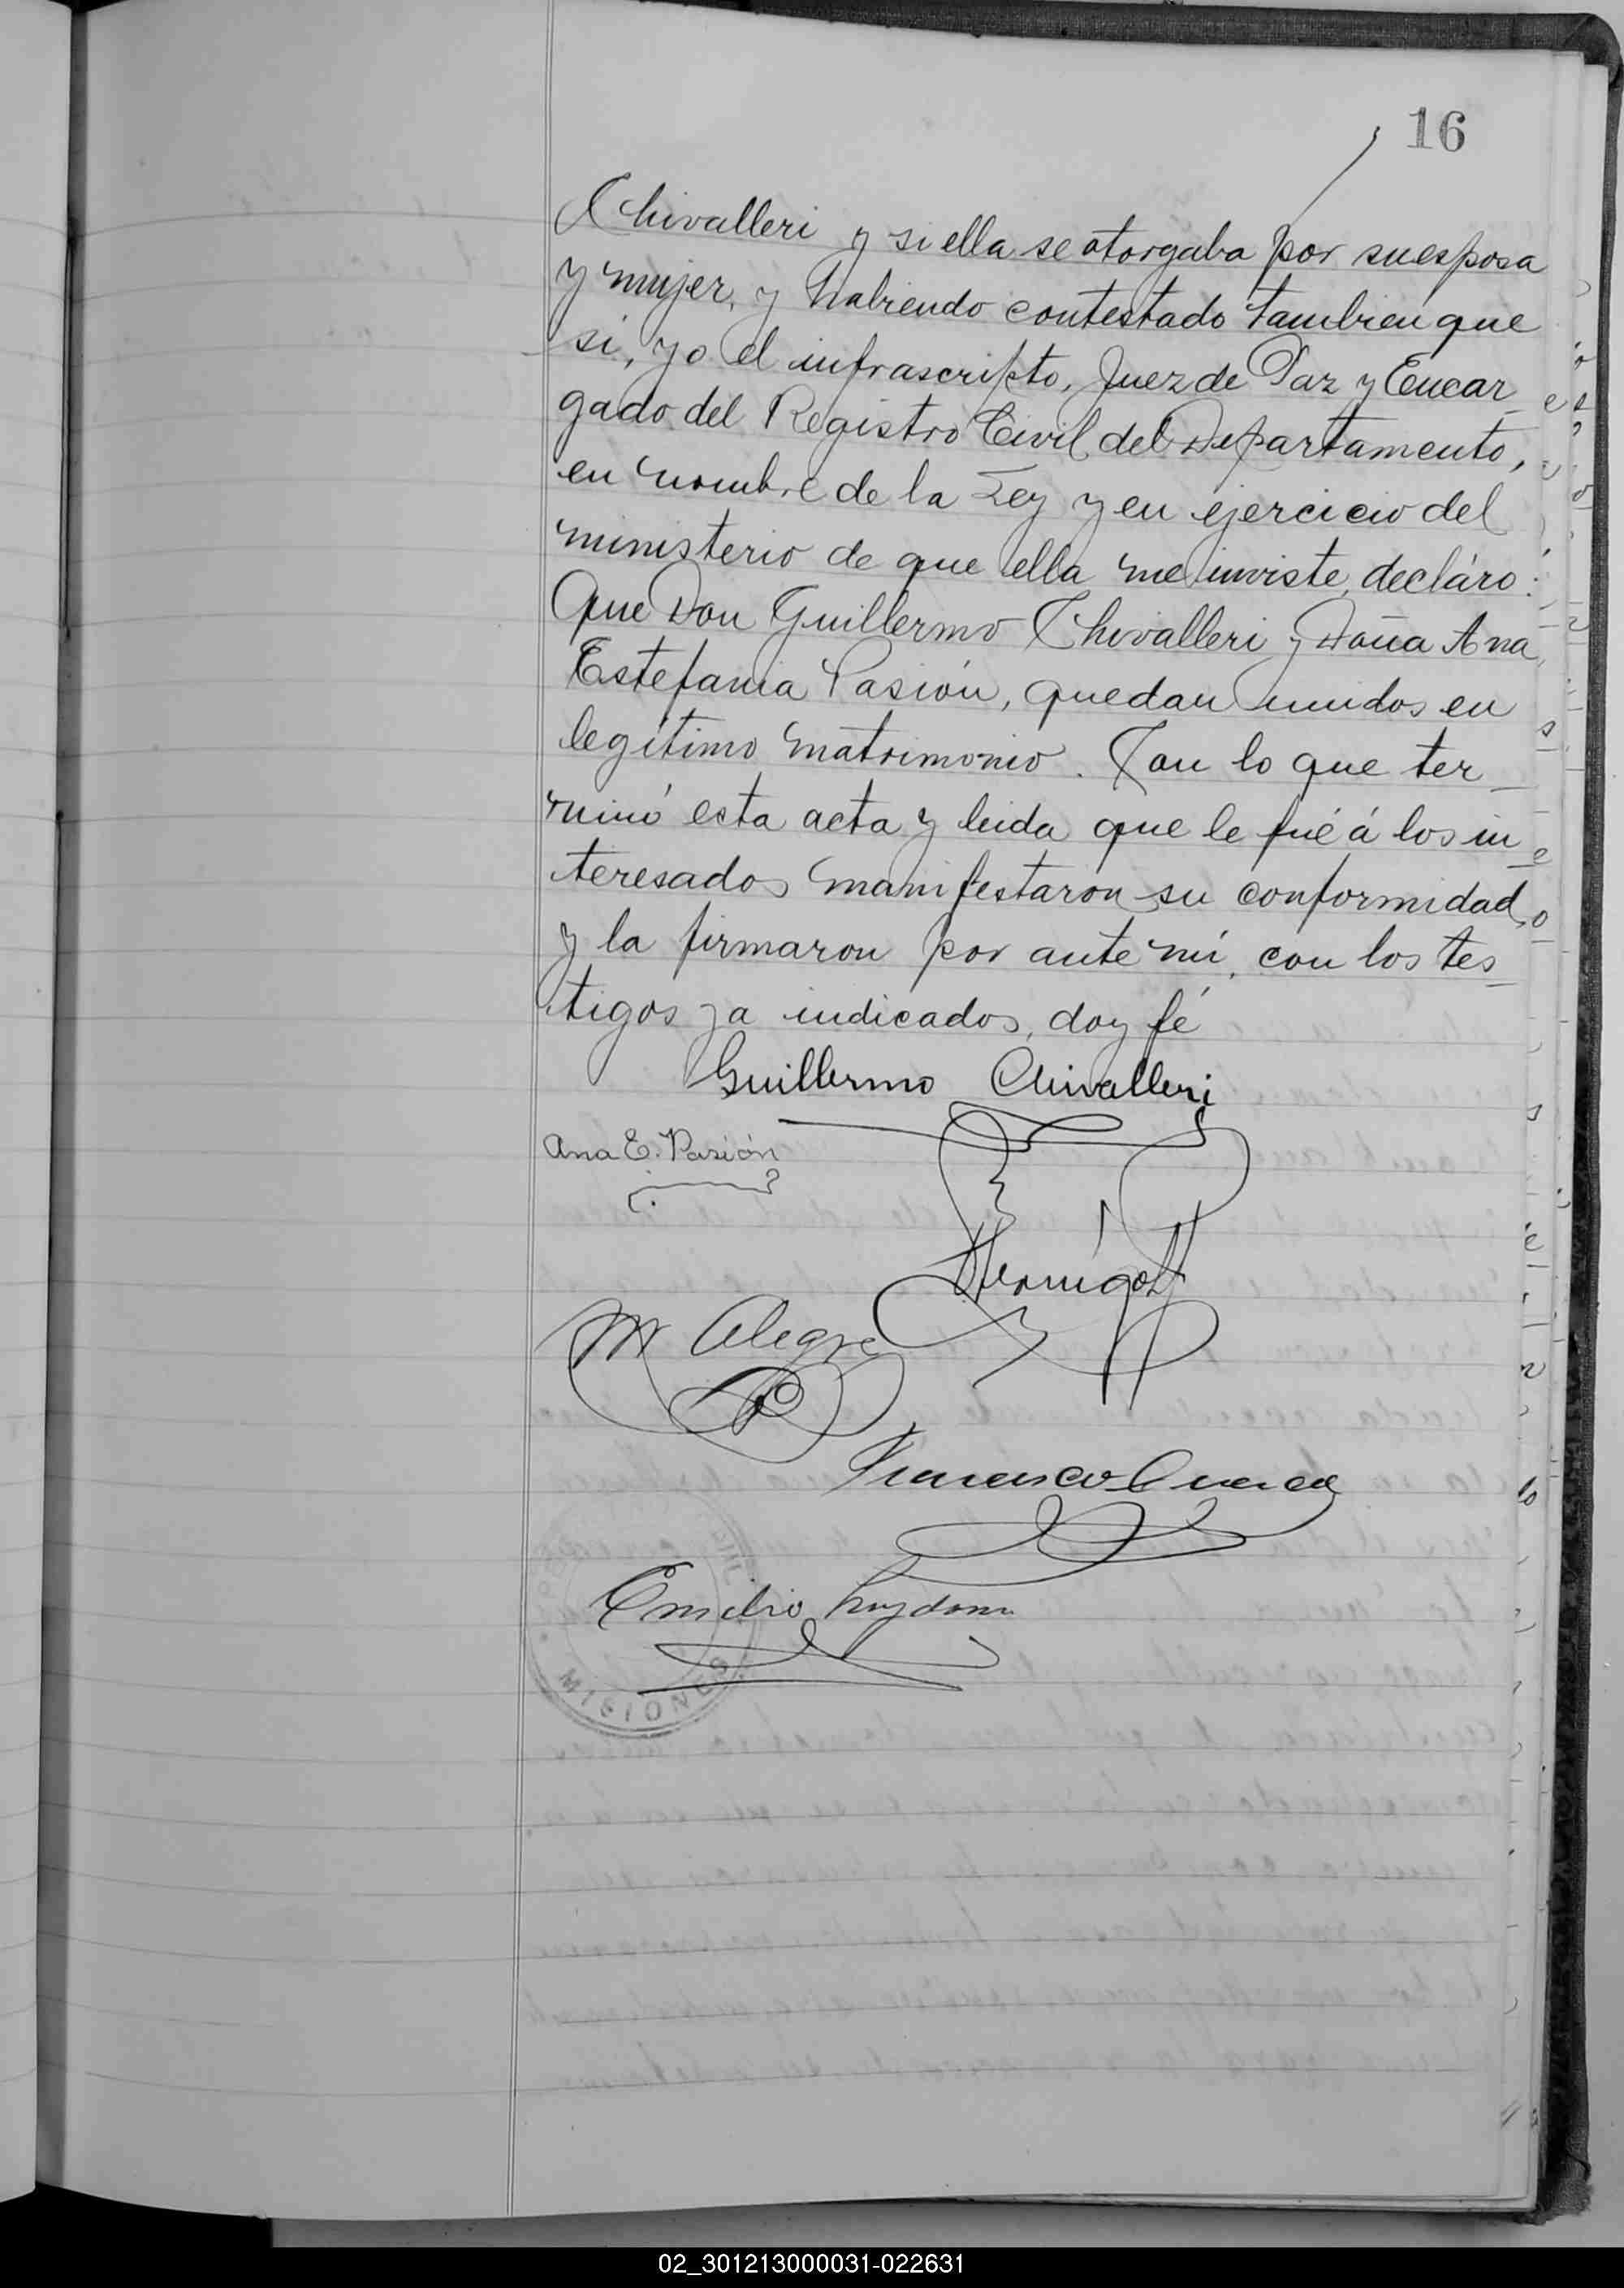 16
Chivalleri y si ella se otorgaba por su esposa
y mujer, y habiendo contestado tambien que
si, yo el infrascripto, Juez de Paz y Encar
gado del Registro Civil del Departamento,
en nombre de la Ley y en ejercicio del
ministerio de que ella me inviste, decláro:
Que Don Guillermo Chivalleri y Doña Ana
Estefania Pasión, quedan unidos en
legítimo matrimonio. Con lo que ter_
minó esta acta y leida que le fué á los in_
teresados manifestaron su conformidad,
y la firmaron por ante mi, con los tes_
tigos ya indicados, doy fé
Guillermo Chivalleri
Ana E. Pasión
M Alegre
Francisco Cuenca
Emilio
MISIONES
02_301213000031-022631